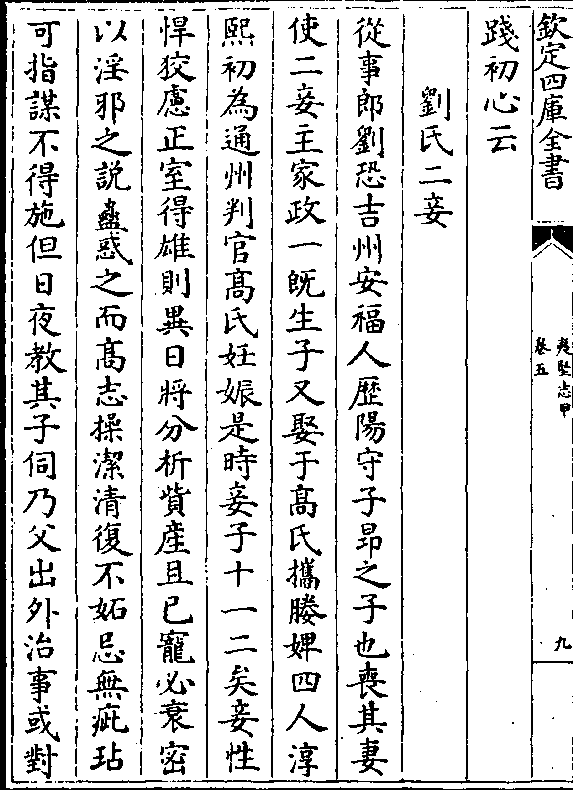 欽定四庫全書
夷堅志甲
卷五
九
踐初心云
劉氏二妾
從事郎劉恐吉州安福人歴陽守子昂之子也喪其妻
使二妾主家政一旣生子又娶于髙氏攜媵婢四人淳
熙初為通州判官髙氏妊娠是時妾子十一二矣妾性
悍狡慮正室得雄則異日將分析貲産且已寵必衰密
以淫邪之説蠱惑之而髙志操潔清復不妬忌無疵玷
可指謀不得施但日夜教其子伺乃父出外治事或對